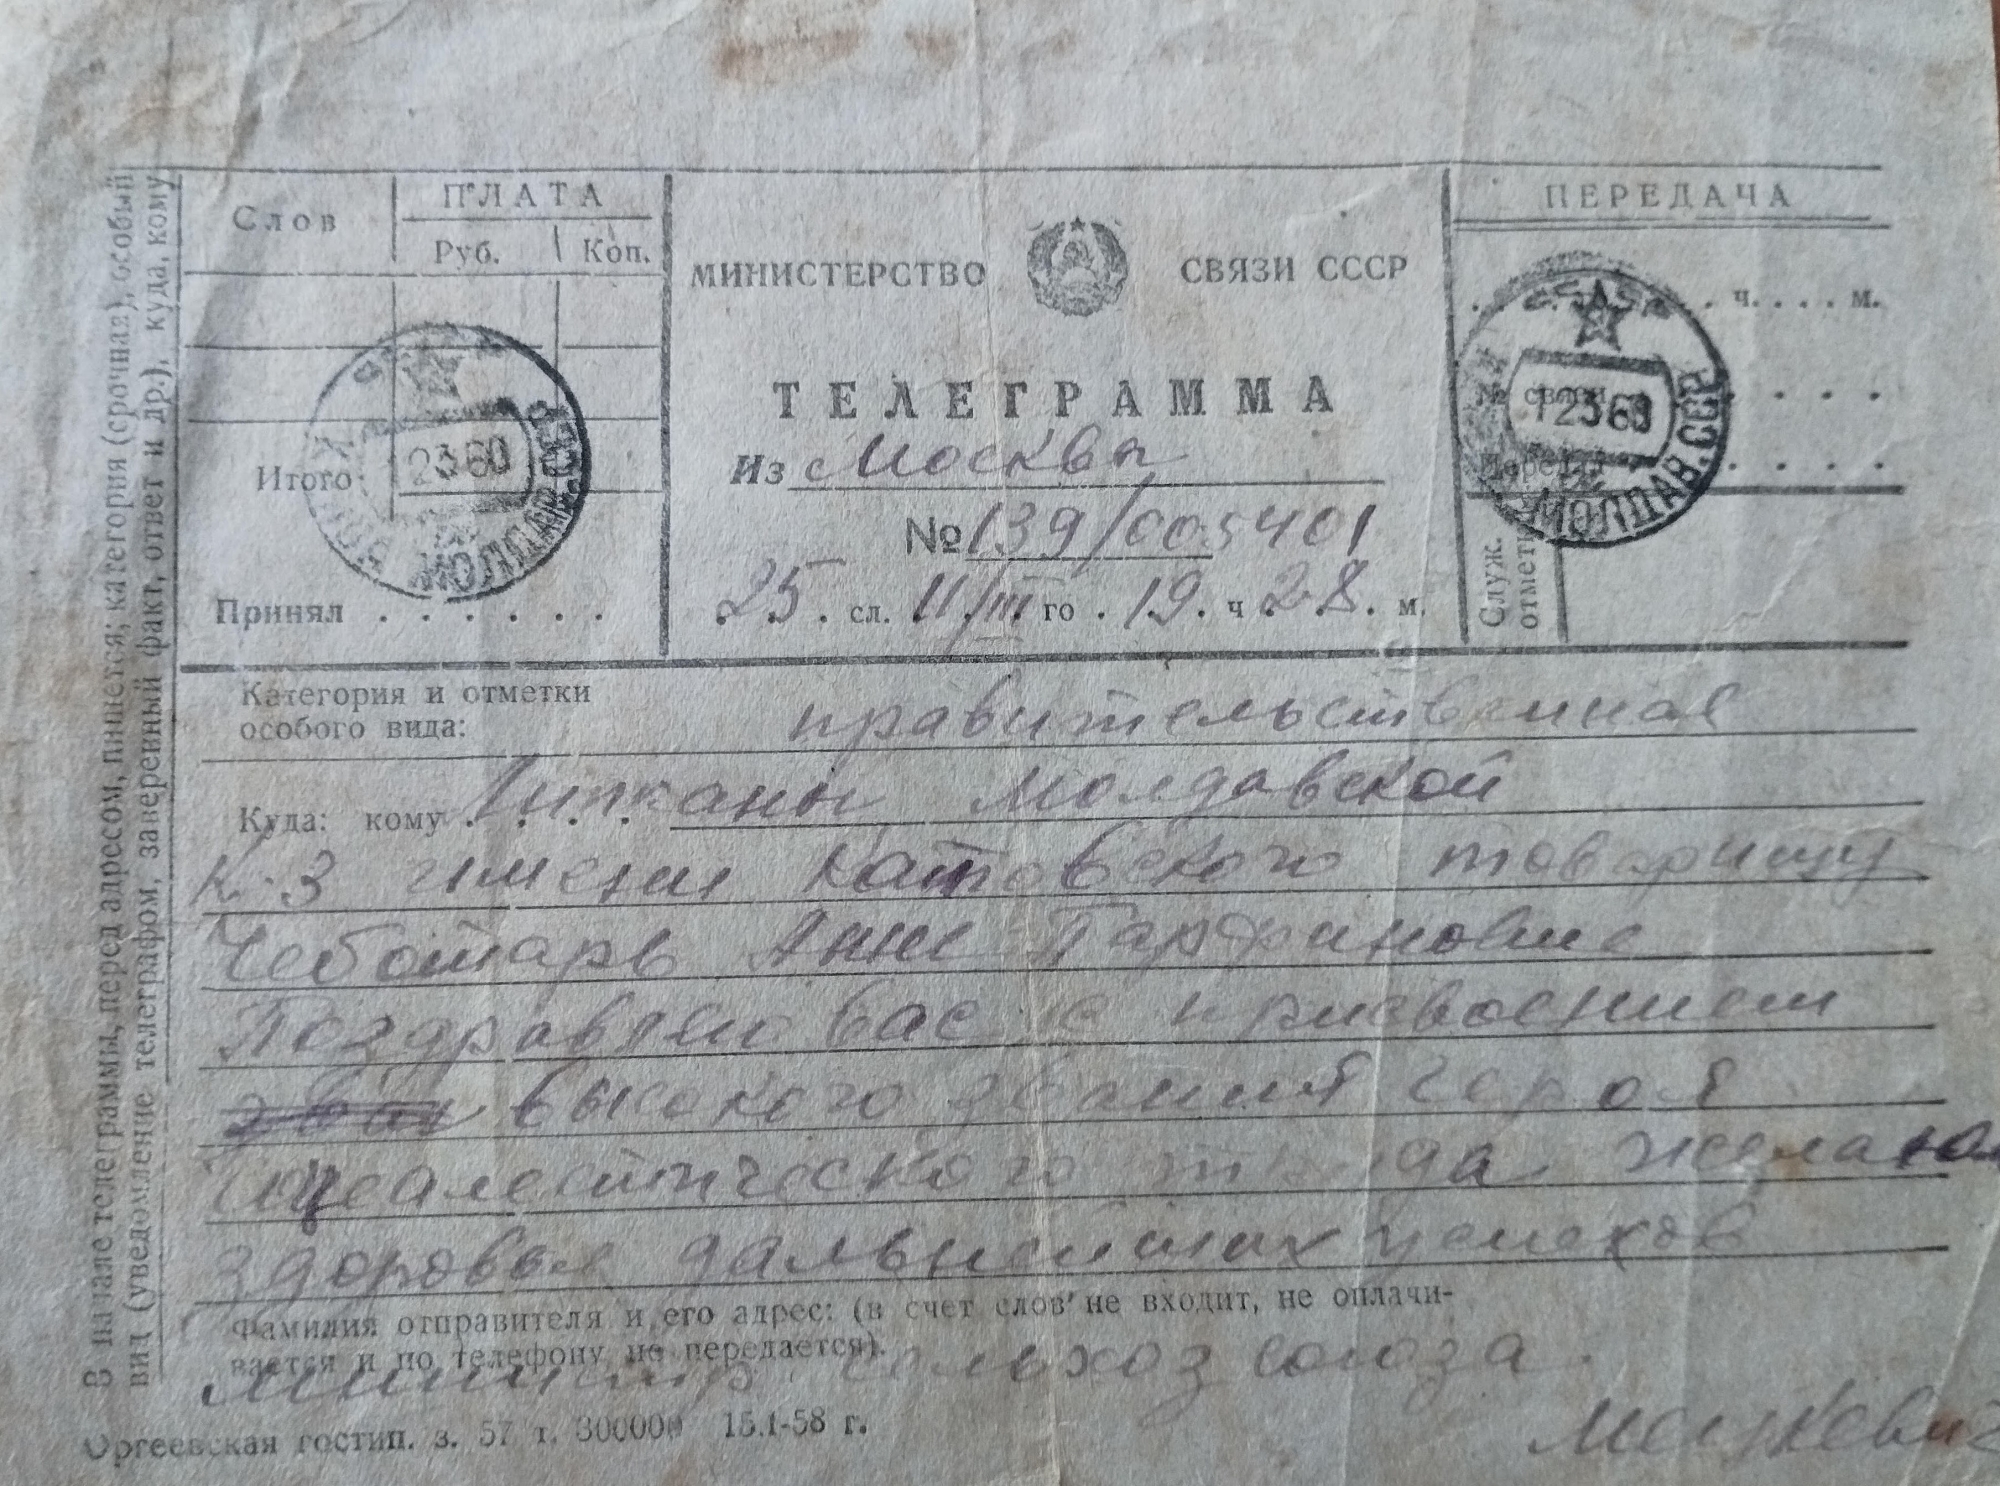 В начале телеграммы, перед адресом, пишется; категория (срочная), особый
вид (уведомление телеграфом, заверенный факт, ответ и др.), куда, кому
Слов
ПЛАТА
Руб. Коп.
Итого
Принял . . . . . .
МИНИСТЕРСТВО СВЯЗИ СССР
ТЕЛЕГРАММА
Из Москвы
№ 139/005401
25 сл. 11/III го 19 ч 28 м.
ПЕРЕДАЧА
ч. . . . м.
№ связи
Передал
Служ.
отметк
12360
МОЛДАВ.ССР
12360
МОЛДАВ.ССР
Категория и отметки
особого вида: правительственная
Куда: кому Липканы Молдавской
к-з имени Котовского товарищу
Чеботарь Анне Парфиновне
Поздравляю вас с присвоением
высокого звания героя
социалистического труда желаю
здоровья дальнейших успехов
Фамилия отправителя и его адрес: (в счет слов не входит, не оплачи-
вается и по телефону не передается).
Министр сельхоз союза
Мацкевич
Оргеевская гостип. з. 57 т. 300000 15.1-58 г.